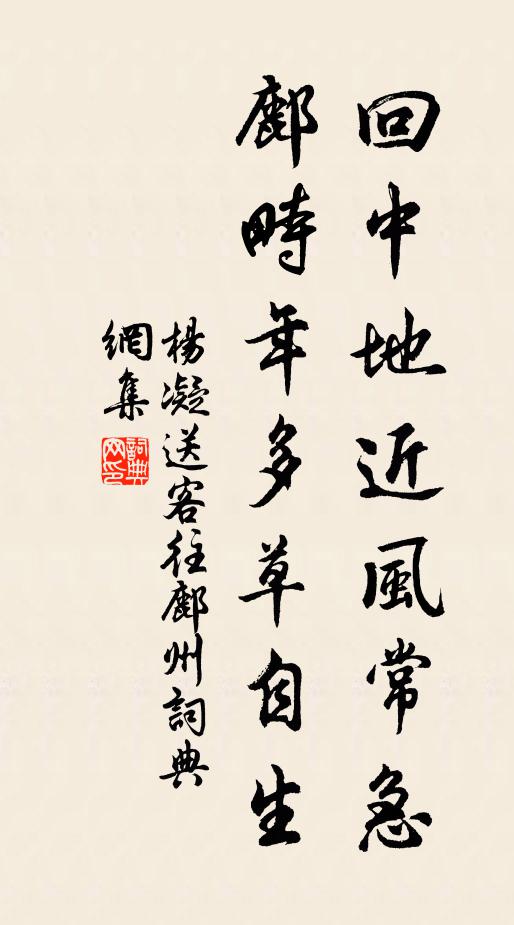 回中地近風常急
鄜畤年多草自生
楊凝送客往鄜州詞典
網集
詞典
网印